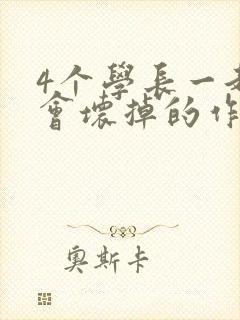 4个學長一起
會壞掉的作
奧斯卡